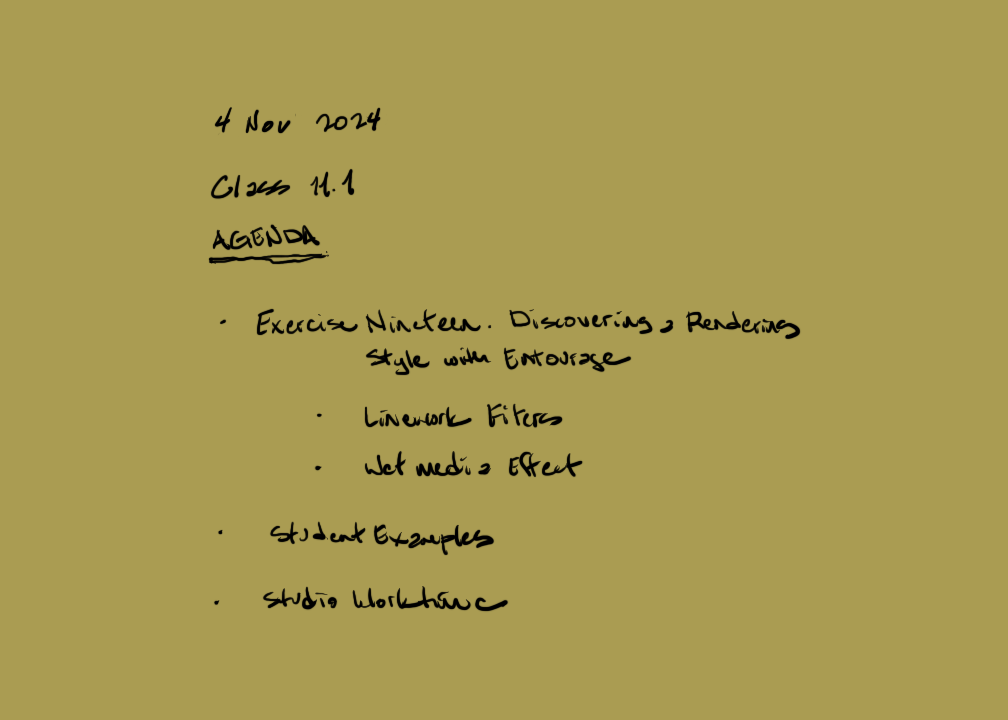 4 Nov 2024
Class 11.1
AGENDA
· Exercise Nineteen. Discovering a Rendering
Style with Entourage
· Linework Filters
· Wet media Effect
· Student Examples
· Studio Worktime